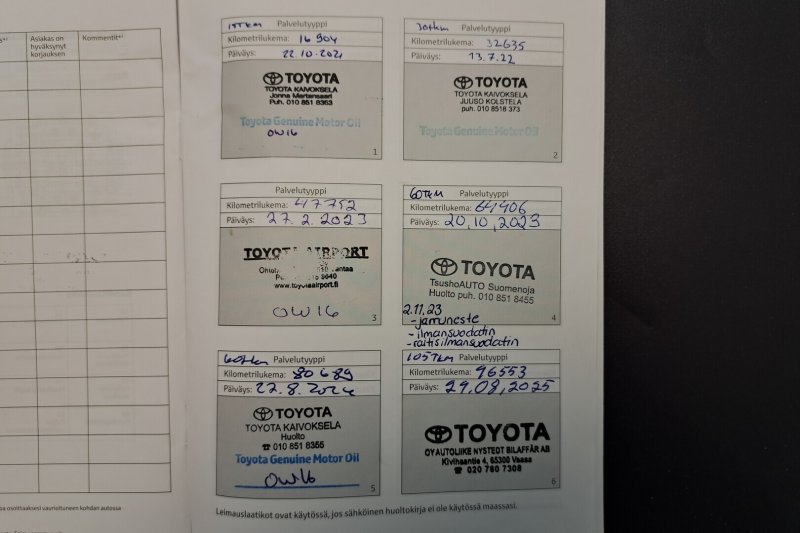 Asiakas on
hyväksynyt
korjauksen
Kommentit*⁾
15TKM Palvelutyyppi
Kilometrilukema: 16 904
Päiväys: 22.10.2021
TOYOTA
TOYOTA KAIVOKSELA
Jonna Martensaari
Puh. 010 851 8363
Toyota Genuine Motor Oil
OW16
1
30tkm Palvelutyyppi
Kilometrilukema: 32635
Päiväys: 13.7.22
TOYOTA
TOYOTA KAIVOKSELA
JUUSO KOLSTELA
puh. 010 8518 373
Toyota Genuine Motor Oil
2
Palvelutyyppi
Kilometrilukema: 47752
Päiväys: 27.2.2023
TOYOTA AIRPORT
www.toyotaairport.fi
OW16
3
60TKM Palvelutyyppi
Kilometrilukema: 64406
Päiväys: 20,10,2023
TOYOTA
TsushoAUTO Suomenoja
Huolto puh. 010 851 8455
2.11.23
-jarruneste
-ilmansuodatin
-raitisilmansuodatin
4
Palvelutyyppi
Kilometrilukema: 80689
Päiväys: 22.8.2024
TOYOTA
TOYOTA KAIVOKSELA
Huolto
☎ 010 851 8355
Toyota Genuine Motor Oil
OW16
5
105TKM Palvelutyyppi
Kilometrilukema: 96553
Päiväys: 29,08,2025
TOYOTA
OY AUTOLIIKE NYSTEDT BILAFFÄR AB
Kivihaantie 4, 65300 Vaasa
☎ 020 780 7308
6
oa osoittaaksesi vaurioituneen kohdan autossa
Leimauslaatikot ovat käytössä, jos sähköinen huoltokirja ei ole käytössä maassasi.